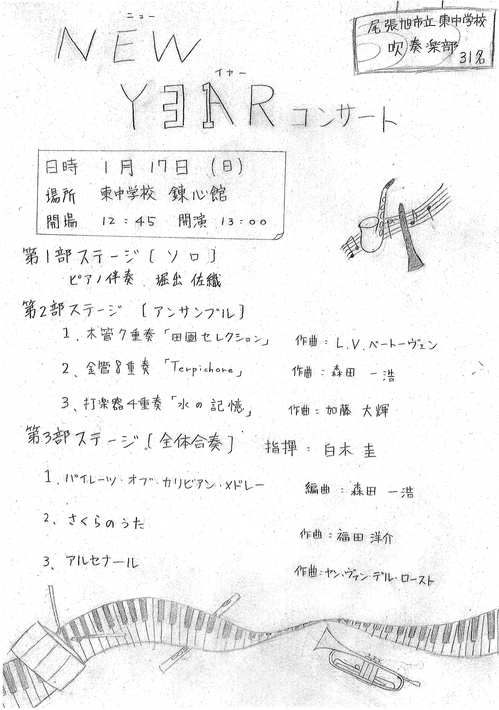 尾張旭市立東中学校
吹奏楽部
31名
ニュー
NEW
イヤー
YEAR コンサート
日時 1月17日(日)
場所 東中学校 錬心館
開場 12:45 開演 13:00
第1部ステージ[ソロ]
ピアノ伴奏 堀出 佐織
第2部ステージ [アンサンブル]
1、木管7重奏「田園セレクション」 作曲:L.V.ベートーヴェン
2、金管8重奏「Terpichore」 作曲:森田 一浩
3、打楽器4重奏「水の記憶」 作曲:加藤 大輝
第3部ステージ[全体合奏] 指揮:白木 圭
1、パイレーツ・オブ・カリビアン・メドレー 編曲:森田 一浩
2、さくらのうた 作曲:福田 洋介
3、アルセナール 作曲:ヤン・ヴァン・デル・ロースト